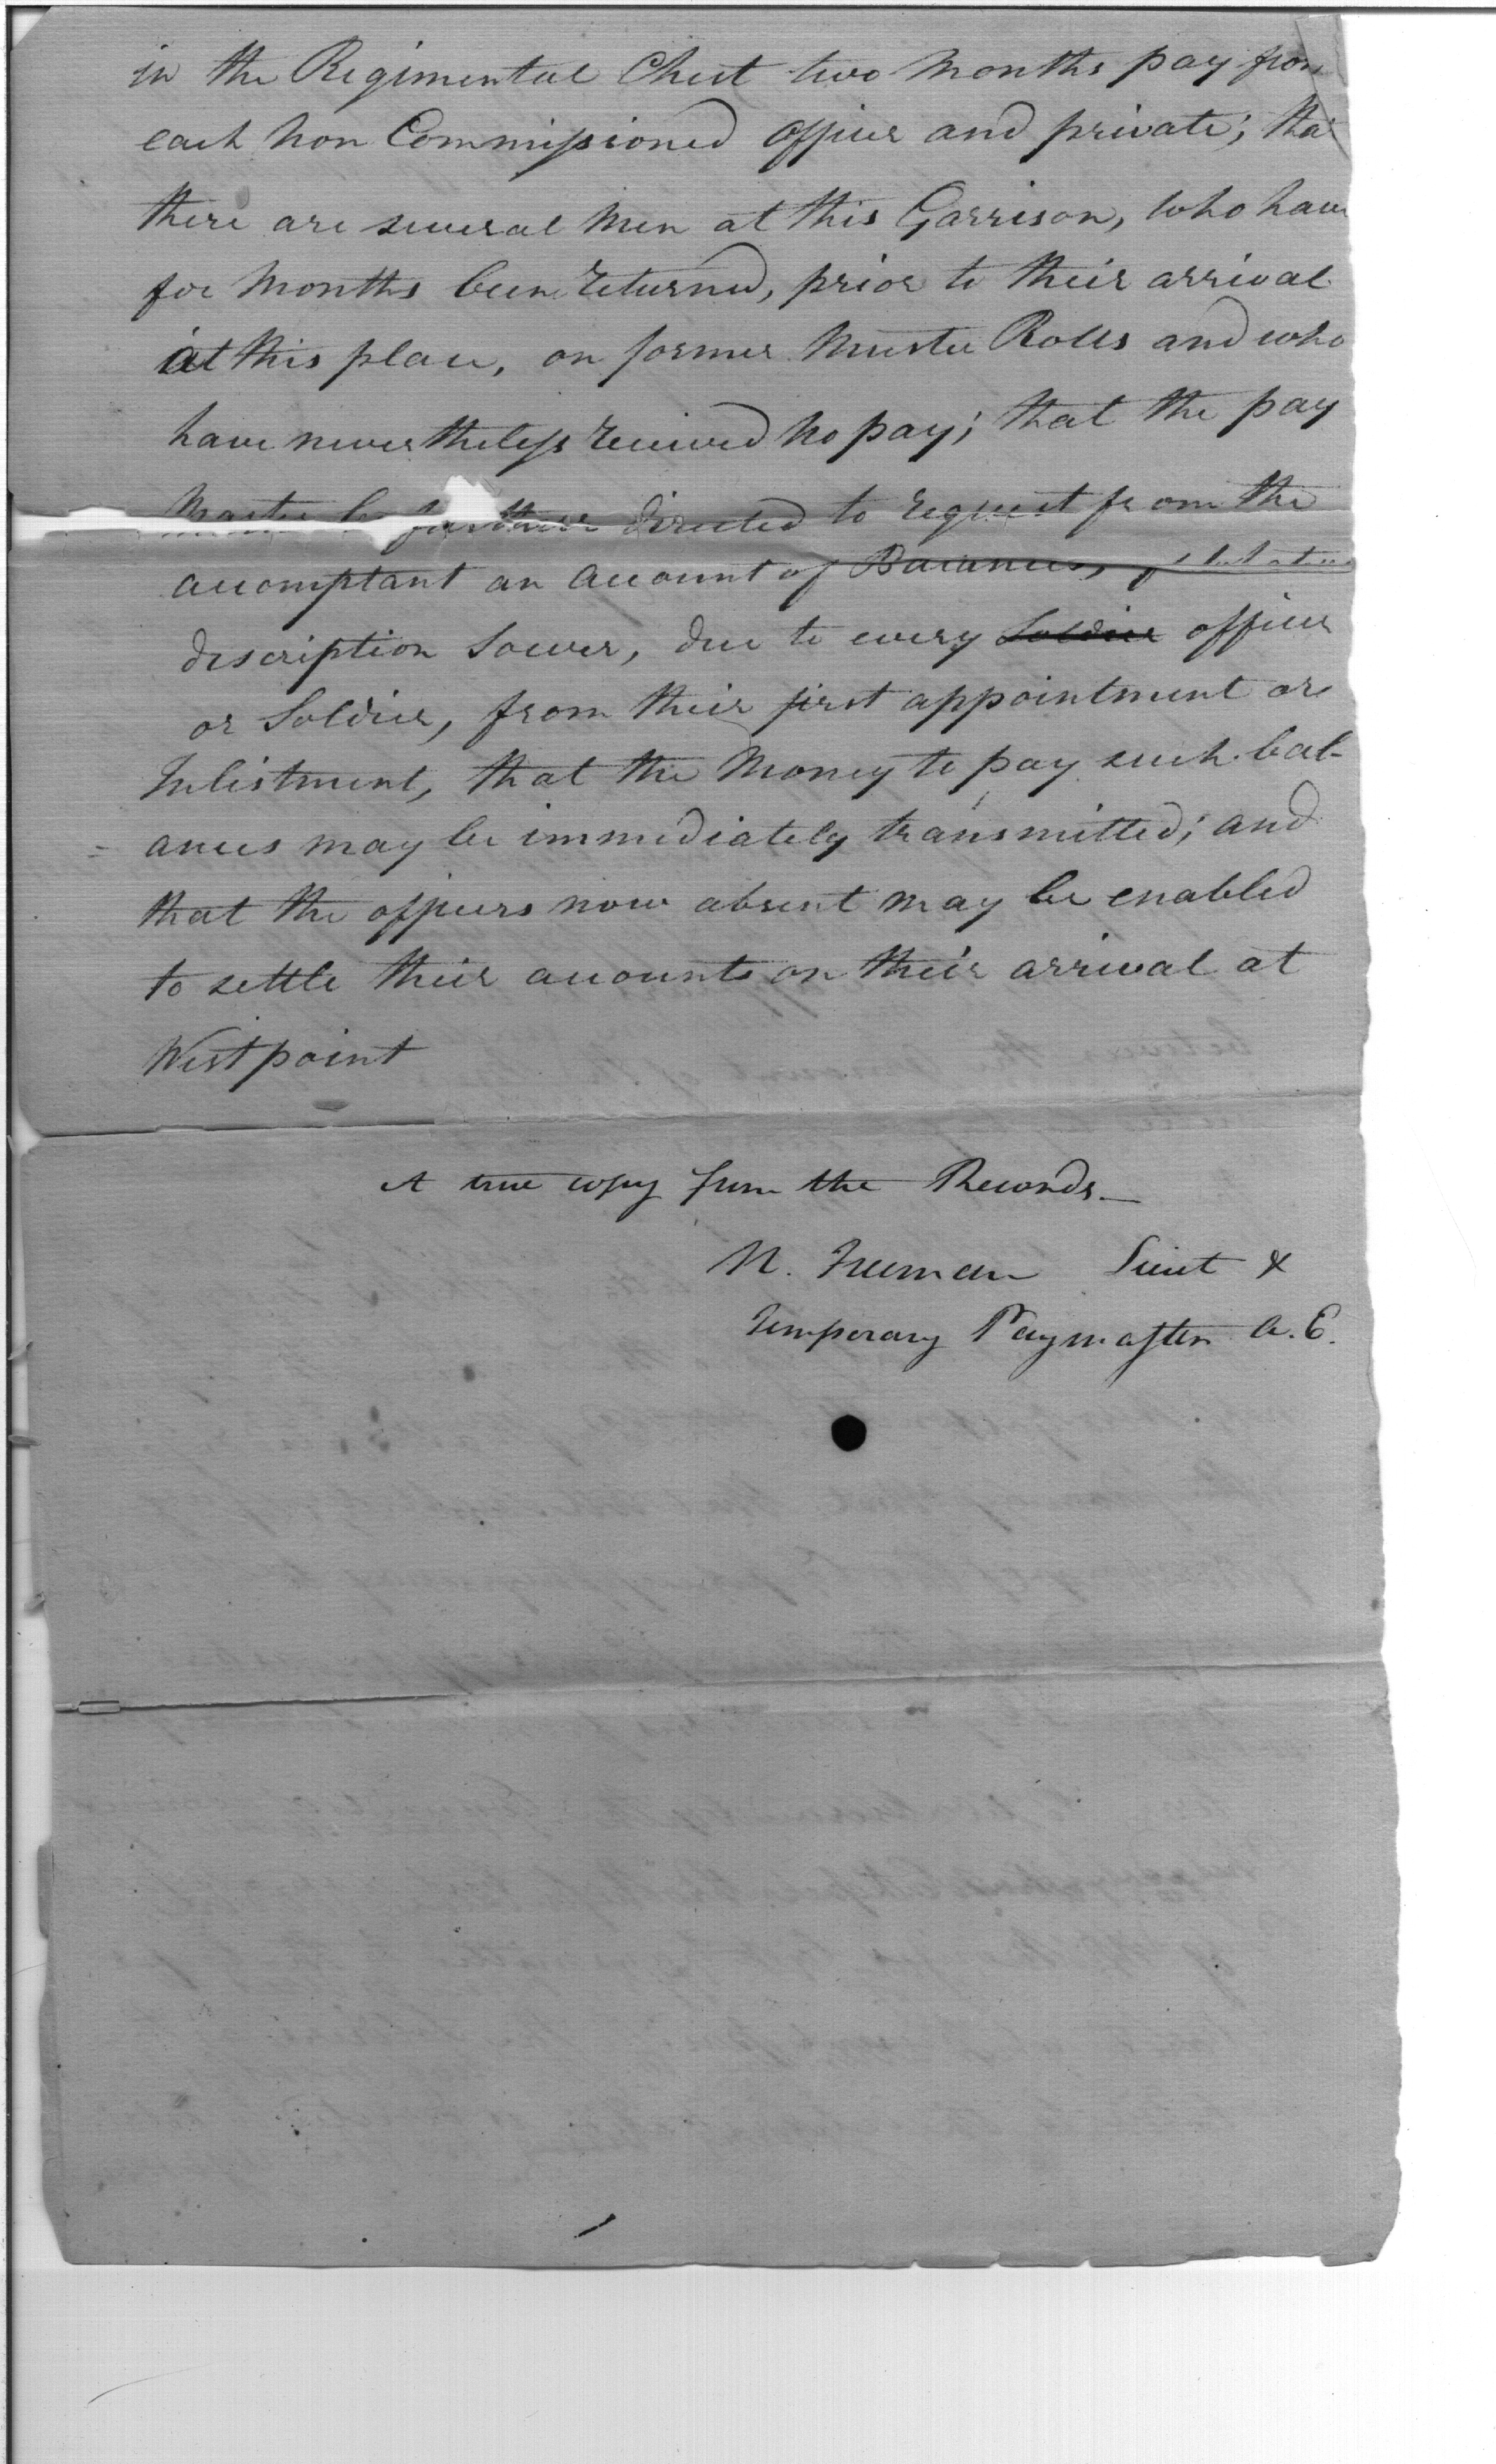 in the Regimental Chest two Months pay from
each non Commissioned officer and private; that
there are several Men at this Garrison, who have
for Months been returned, prior to their arrival
at this place, on former Muster Rolls and who
have nevertheless received no pay; that the pay
Master be further directed to request from the
accomptant an account of Balances, of what
discription soever, due to every Soldier officer
or Soldier, from their first appointment or
Inlistment, that the Money to pay such bal-
ances may be immediately transmitted; and
that the officers now absent may be enabled
to settle their accounts on their arrival at
Westpoint
A true copy from the Records_
N. Freeman Lieut &
Temporary Paymaster A. E.